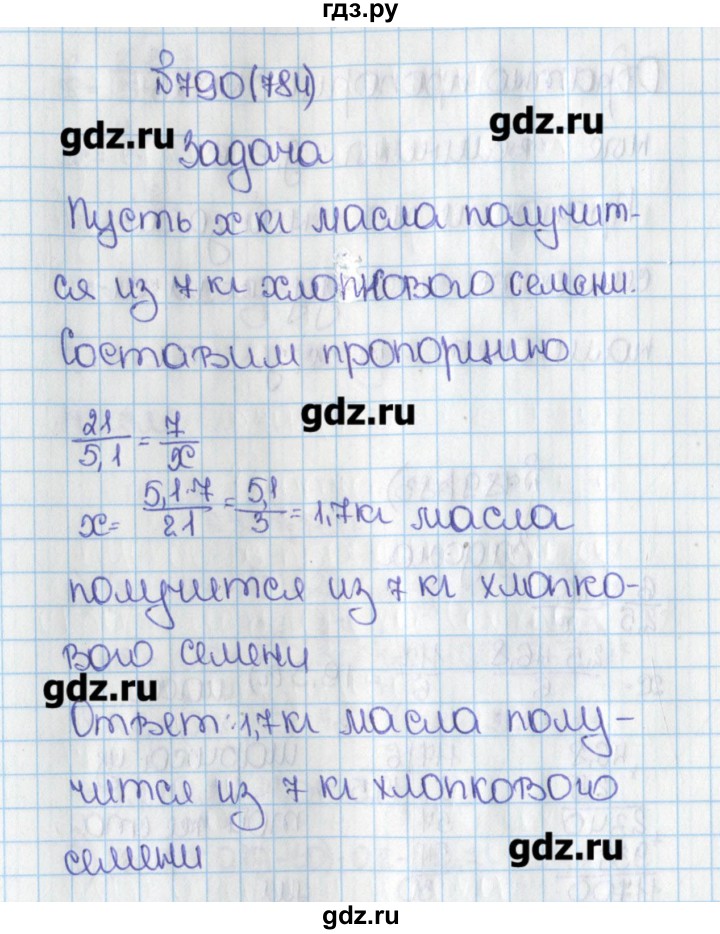 гдз.ру
№790(784)
gdz.ru
gdz.ru
Задача
Пусть x кг масла получит-
ся из 7 кг хлопкового семени.
Составим пропорцию
gdz.ru
21/5,1 = 7/x
x = 5,1·7/21 = 5,1/3 = 1,7кг масла
получится из 7 кг хлопко-
вого семени
gdz.ru
Ответ: 1,7кг масла полу-
чится из 7 кг хлопкового
gdz.ru
семени
gdz.ru